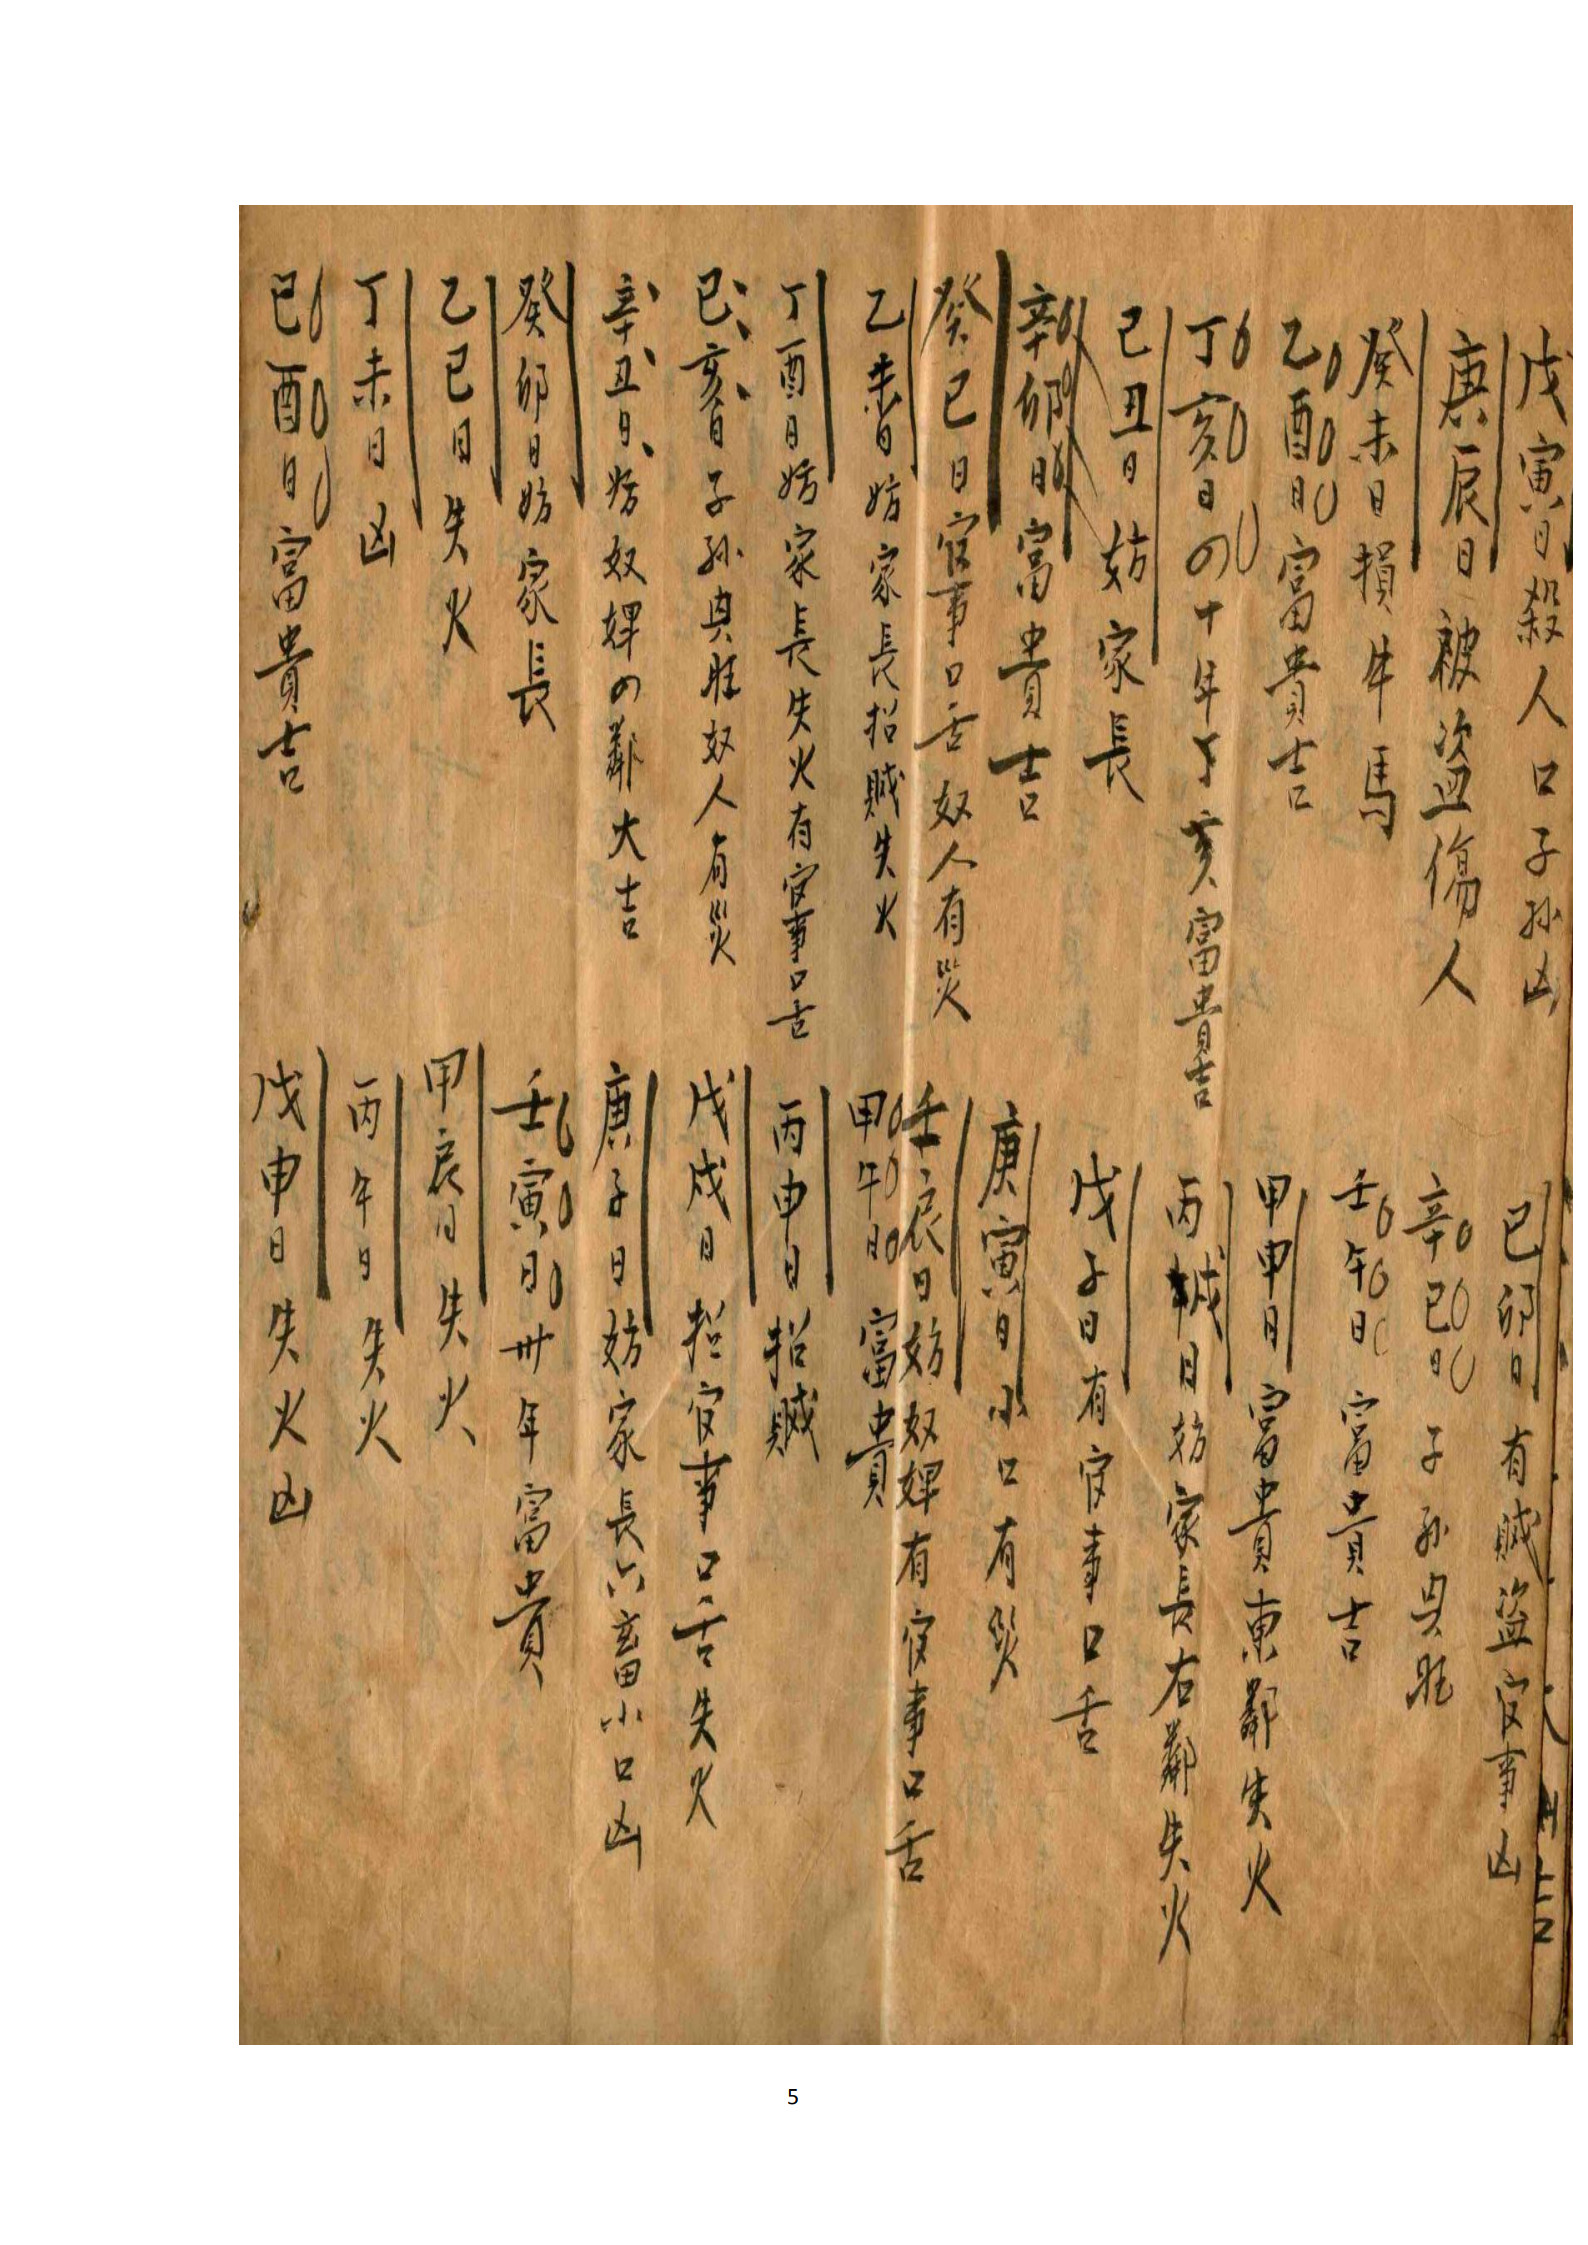 戊寅日殺人口子孫凶
己卯日有賊盜官事凶
庚辰日被盜傷人
辛巳日子孫興旺
癸未日損牛馬
壬午日富貴吉
乙酉日富貴吉
甲申日富貴東鄰失火
丁亥日四十年丁亥富貴吉
丙戌日妨家長右鄰失火
己丑日妨家長
戊子日有官事口舌
辛卯日富貴吉
庚寅日小口有災
癸巳日官事口舌奴人有災
壬辰日妨奴婢有官事口舌
乙未日妨家長招賊失火
甲午日富貴
丁酉日妨家長失火有官事口舌
丙申日招賊
己亥日子孫興旺奴人有災
戊戌日招官事口舌失火
辛丑日妨奴婢四鄰大吉
庚子日妨家長六畜小口凶
癸卯日妨家長
壬寅日卅年富貴
乙巳日失火
甲辰日失火
丁未日凶
丙午日失火
己酉日富貴吉
戊申日失火凶
5